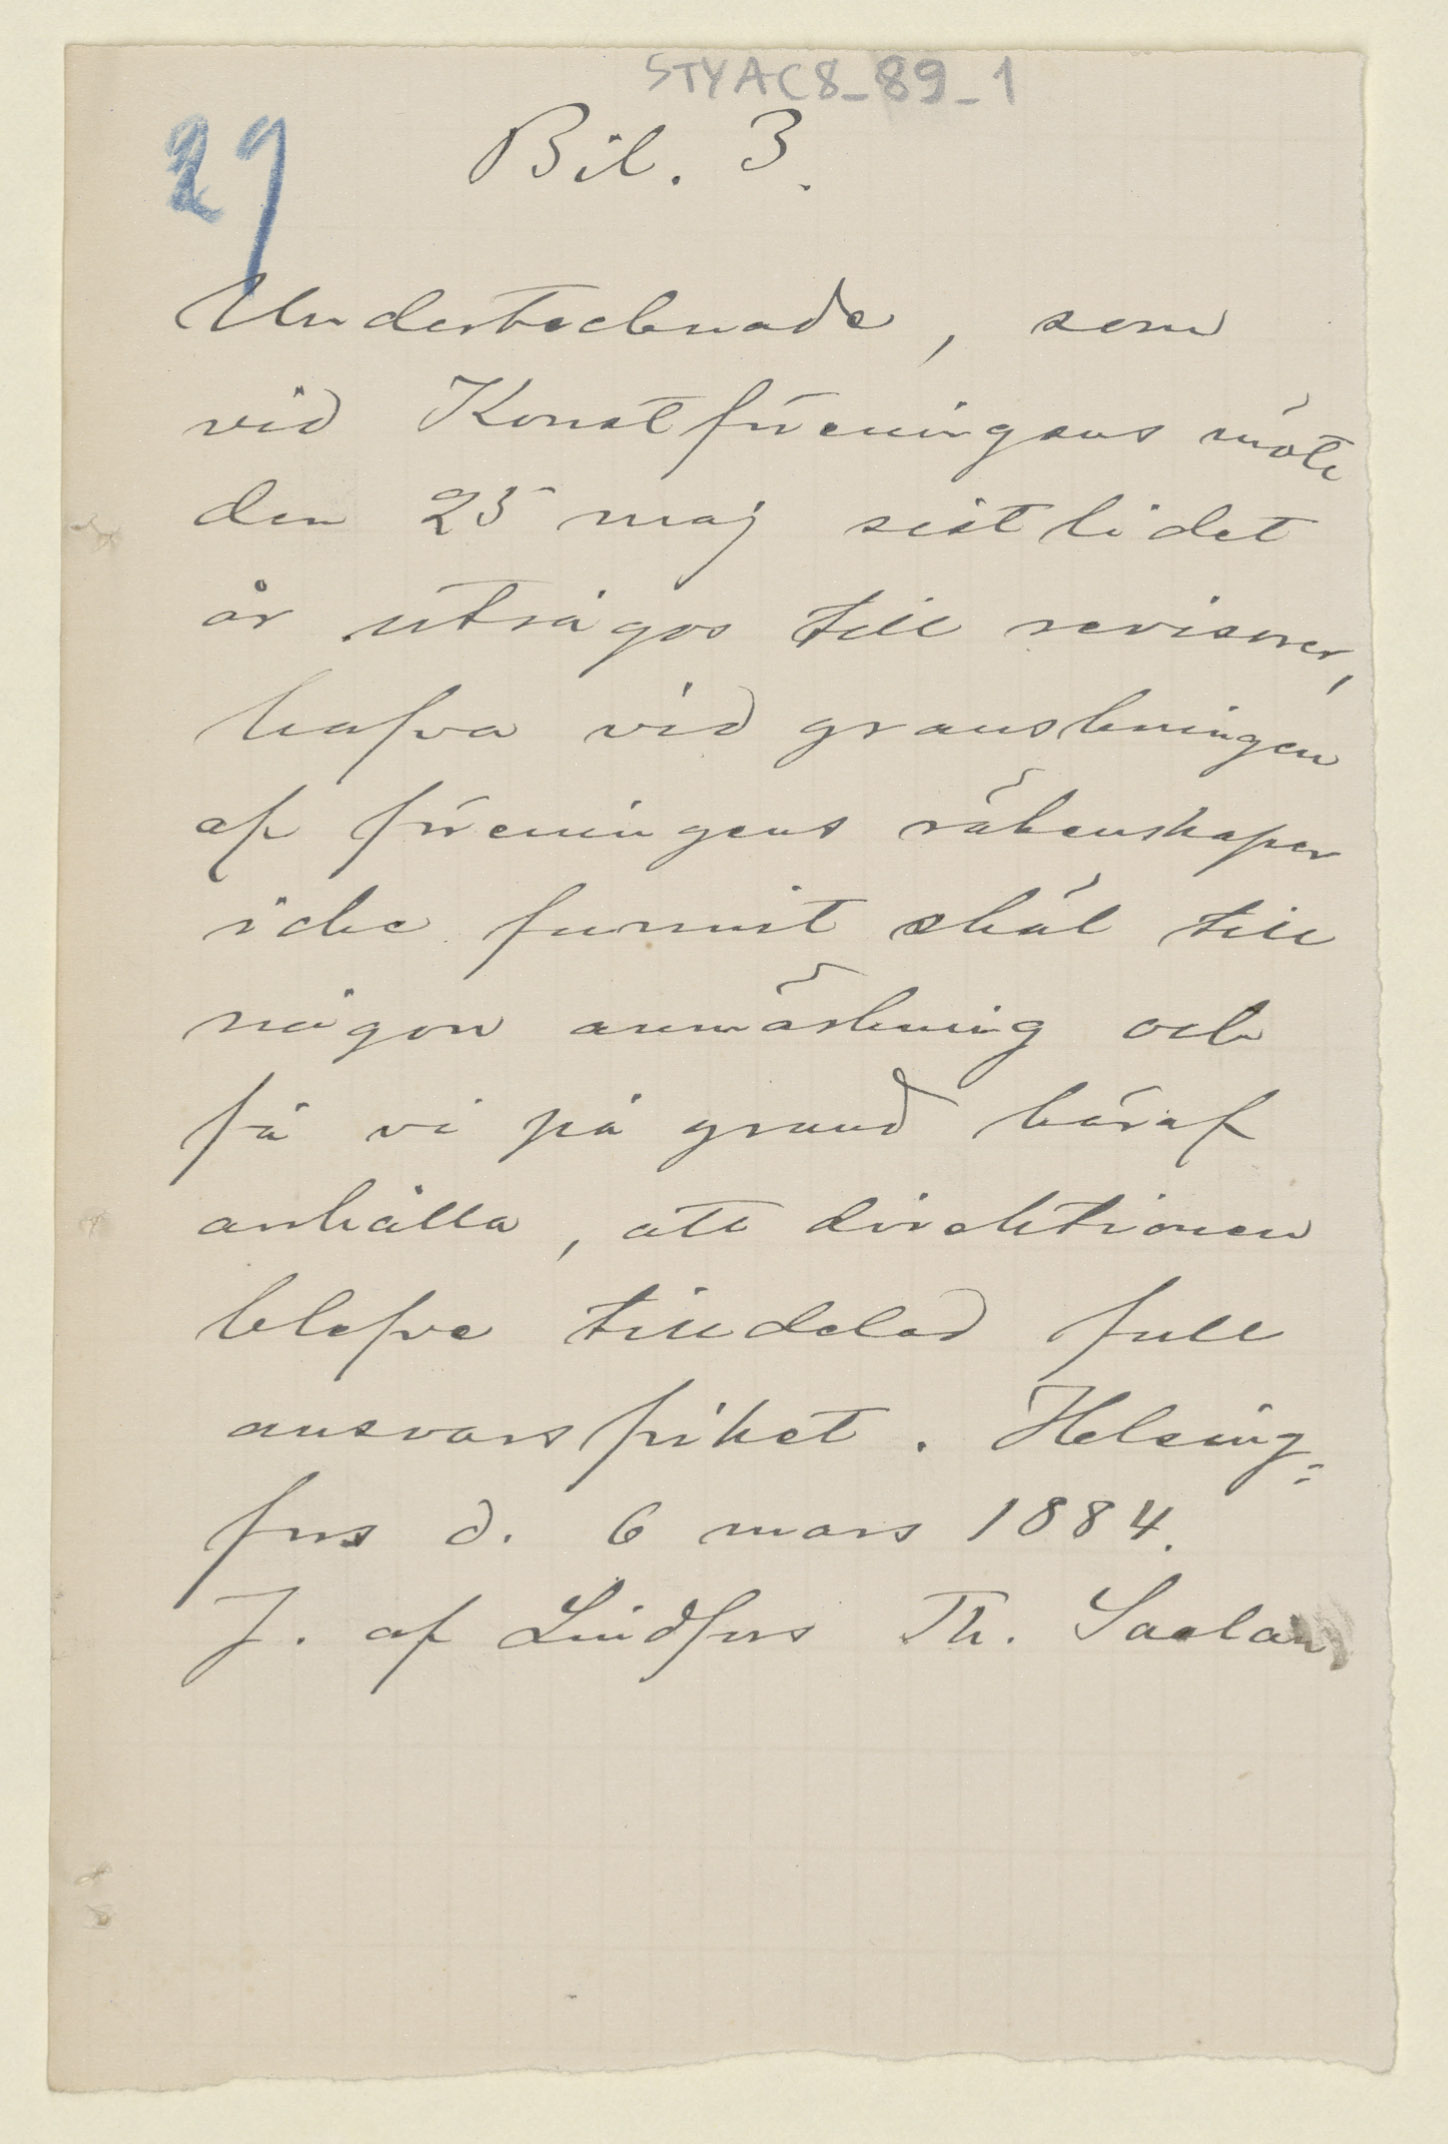 STYAC8_89_1
29
Bil. 3.
Undertecknade, som
vid Konstföreningens möte
den 25 maj sistlidet
år utsågos till revisorer,
hafva vid granskningen
af föreningens räkenskaper
icke funnit skäl till
någon anmärkning och
få vi på grund häraf
anhålla, att direktionen
blefve tilldelad full
ansvarsfrihet. Helsing-
fors d. 6 mars 1884.
J. af Lindfors Th. Saelan